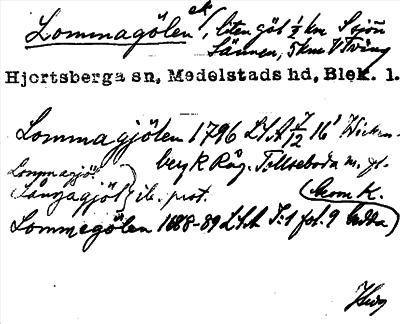 Lommagölen ek/, liten göl ½ km S sjön
Sännen, 5 km V Tving
Hjortsberga sn, Medelstads hd, Blek. l.
Lommagjölen 1796 LSA 7/12 16' Wicken-
berg R Råg. Tellseboda m. fl.
Lommagjöl
Långagjöl } ib. prot. (kom K.
Lommegölen 1688-89 LSA I:1 fol. 9 Ledda)